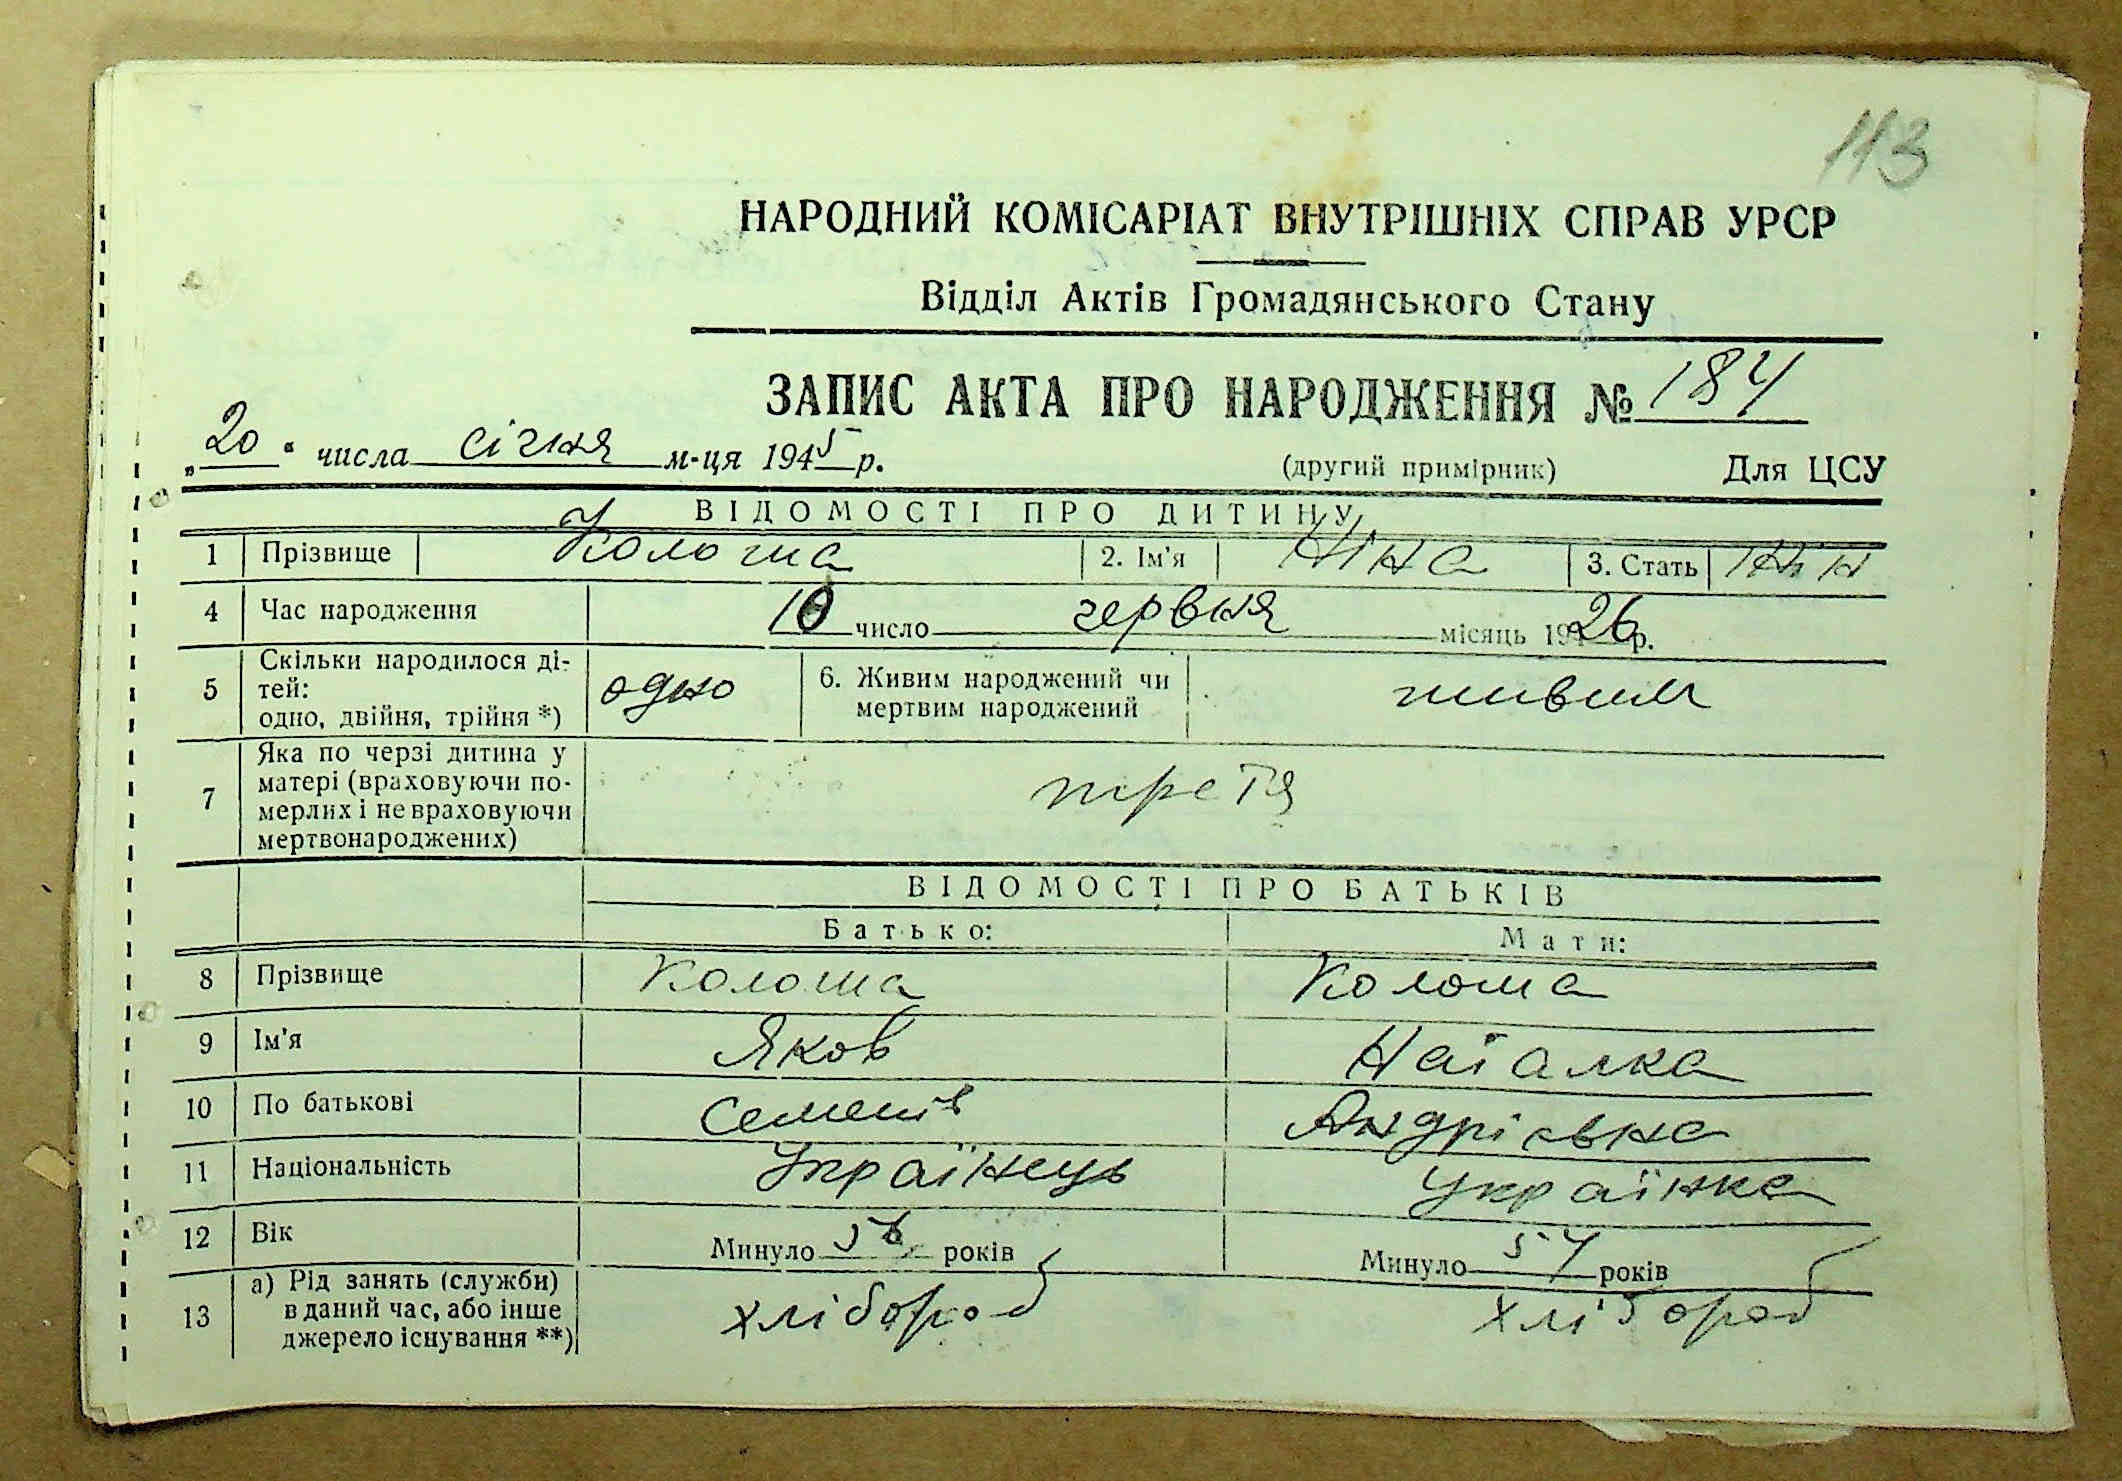 113
НАРОДНИЙ КОМІСАРІАТ ВНУТРІШНІХ СПРАВ УРСР
Відділ Актів Громадянського Стану
ЗАПИС АКТА ПРО НАРОДЖЕННЯ № 184
„20“ числа січня м-ця 1945 р. (другий примірник) Для ЦСУ
ВІДОМОСТІ ПРО ДИТИНУ
1 Прізвище Колоша 2. Ім'я Ніна 3. Стать жін
4 Час народження 10 число червня місяць 1926 р.
5 Скільки народилося ді-
тей:
одно, двійня, трійня *) одно 6. Живим народжений чи
мертвим народжений живим
7 Яка по черзі дитина у
матері (враховуючи по-
мерлих і не враховуючи
мертвонароджених) третя
ВІДОМОСТІ ПРО БАТЬКІВ
Батько: Мати:
8 Прізвище Колоша Колоша
9 Ім'я Яков Наталка
10 По батькові Семенів Андріевна
11 Національність Українець Українка
12 Вік Минуло років Минуло 54 років
13 а) Рід занять (служби)
в даний час, або інше
джерело існування **) хлібороб хлібороб